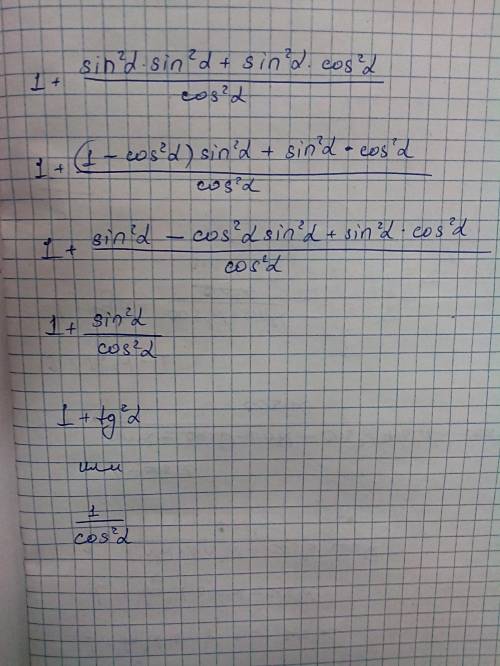 1 + (sin²α · sin²α + sin²α · cos²α) / cos²α
1 + ((1 − cos²α) sin²α + sin²α · cos²α) / cos²α
1 + (sin²α − cos²α sin²α + sin²α · cos²α) / cos²α
1 + sin²α / cos²α
1 + tg²α
или
1 / cos²α